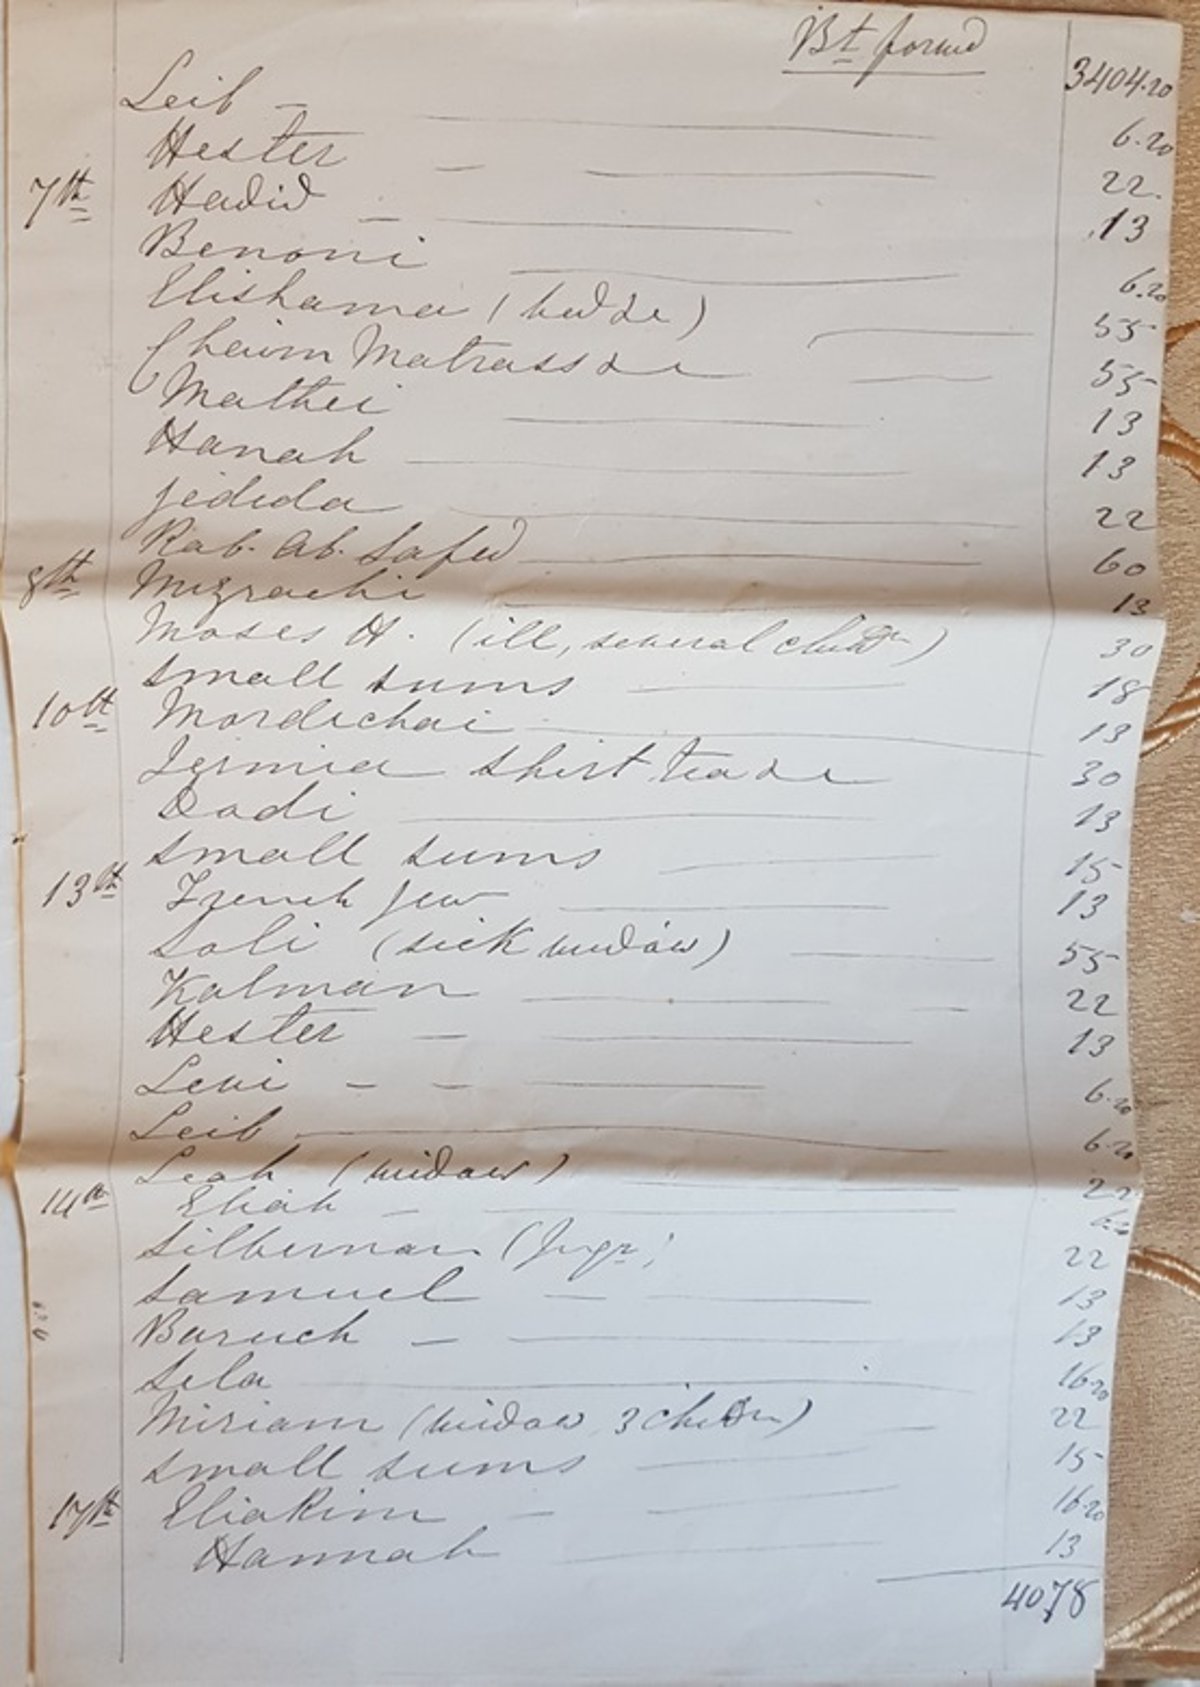 Bt forwd 3404.20
Leib 6.20
Hester 22.
7th Hadid 13
Benoni 6.20
Elishama (trade) 55
Chaim Matrass de 55
Mathei 13
Hanah 13
Jedida 22
Rab. Ab. Safed 60
8th Mizrachi 13
Moses H. (ill, several childn) 30
Small sums 18
10th Mordechai 13
Jermia shirt trade 30
Dodi 13
Small sums 15
13th French Jew 13
Soli (sick widow) 55
Kalman 22
Hester 13
Levi 6.20
Leib 6.20
Leah (widow) 22
14th Eliah
Silberman 22
Samuel 13
Baruch 13
Sela 16.20
Miriam (widow 3 childn) 22
Small sums 15
17th Eliakim 16.20
Hannah 13
4078